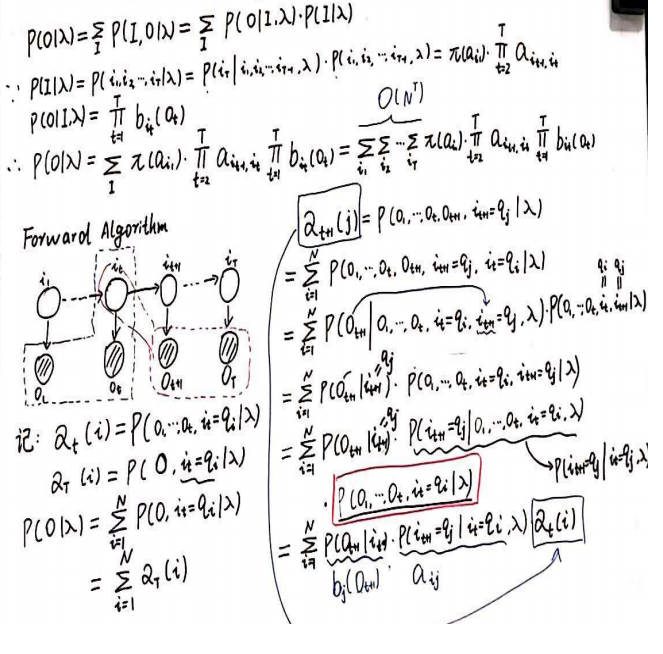 P(O|λ) = Σ_I P(I,O|λ) = Σ_I P(O|I,λ)·P(I|λ)
∵ P(I|λ) = P(i₁,i₂,…,i_T|λ) = P(i_T|i₁,i₂,…,i_{T-1},λ)·P(i₁,i₂,…,i_{T-1}|λ) = π(a_{i₁})·∏_{t=2}^{T} a_{i_{t-1},i_t}
P(O|I,λ) = ∏_{t=1}^{T} b_{i_t}(O_t)
O(N^T)
∴ P(O|λ) = Σ_I π(a_{i₁})·∏_{t=2}^{T} a_{i_{t-1},i_t} ∏_{t=1}^{T} b_{i_t}(O_t) = Σ_{i₁} Σ_{i₂} … Σ_{i_T} π(a_{i₁})·∏_{t=2}^{T} a_{i_{t-1},i_t} ∏_{t=1}^{T} b_{i_t}(O_t)
Forward Algorithm
i₁ i_t i_{t+1} i_T
O₁ O_t O_{t+1} O_T
记: α_t(i) = P(O₁,…,O_t, i_t=q_i|λ)
α_T(i) = P(O, i_t=q_i|λ)
P(O|λ) = Σ_{i=1}^{N} P(O, i_t=q_i|λ)
= Σ_{i=1}^{N} α_T(i)
α_{t+1}(j) = P(O₁,…,O_t,O_{t+1}, i_{t+1}=q_j|λ)
= Σ_{i=1}^{N} P(O₁,…,O_t, O_{t+1}, i_{t+1}=q_j, i_t=q_i|λ)
q_i q_j
= Σ_{i=1}^{N} P(O_{t+1}|O₁,…,O_t, i_t=q_i, i_{t+1}=q_j, λ)·P(O₁,…,O_t, i_t, i_{t+1}|λ)
q_j
= Σ_{i=1}^{N} P(O_{t+1}|i_{t+1})·P(O₁,…,O_t, i_t=q_i, i_{t+1}=q_j|λ)
q_j
= Σ_{i=1}^{N} P(O_{t+1}|i_{t+1})·P(i_{t+1}=q_j|O₁,…,O_t, i_t=q_i, λ)
→P(i_{t+1}=q_j|i_t=q_i,λ)
·P(O₁,…,O_t, i_t=q_i|λ)
= Σ_{i=1}^{N} P(O_{t+1}|i_{t+1})·P(i_{t+1}=q_j|i_t=q_i,λ) α_t(i)
b_j(O_{t+1})· a_{ij}